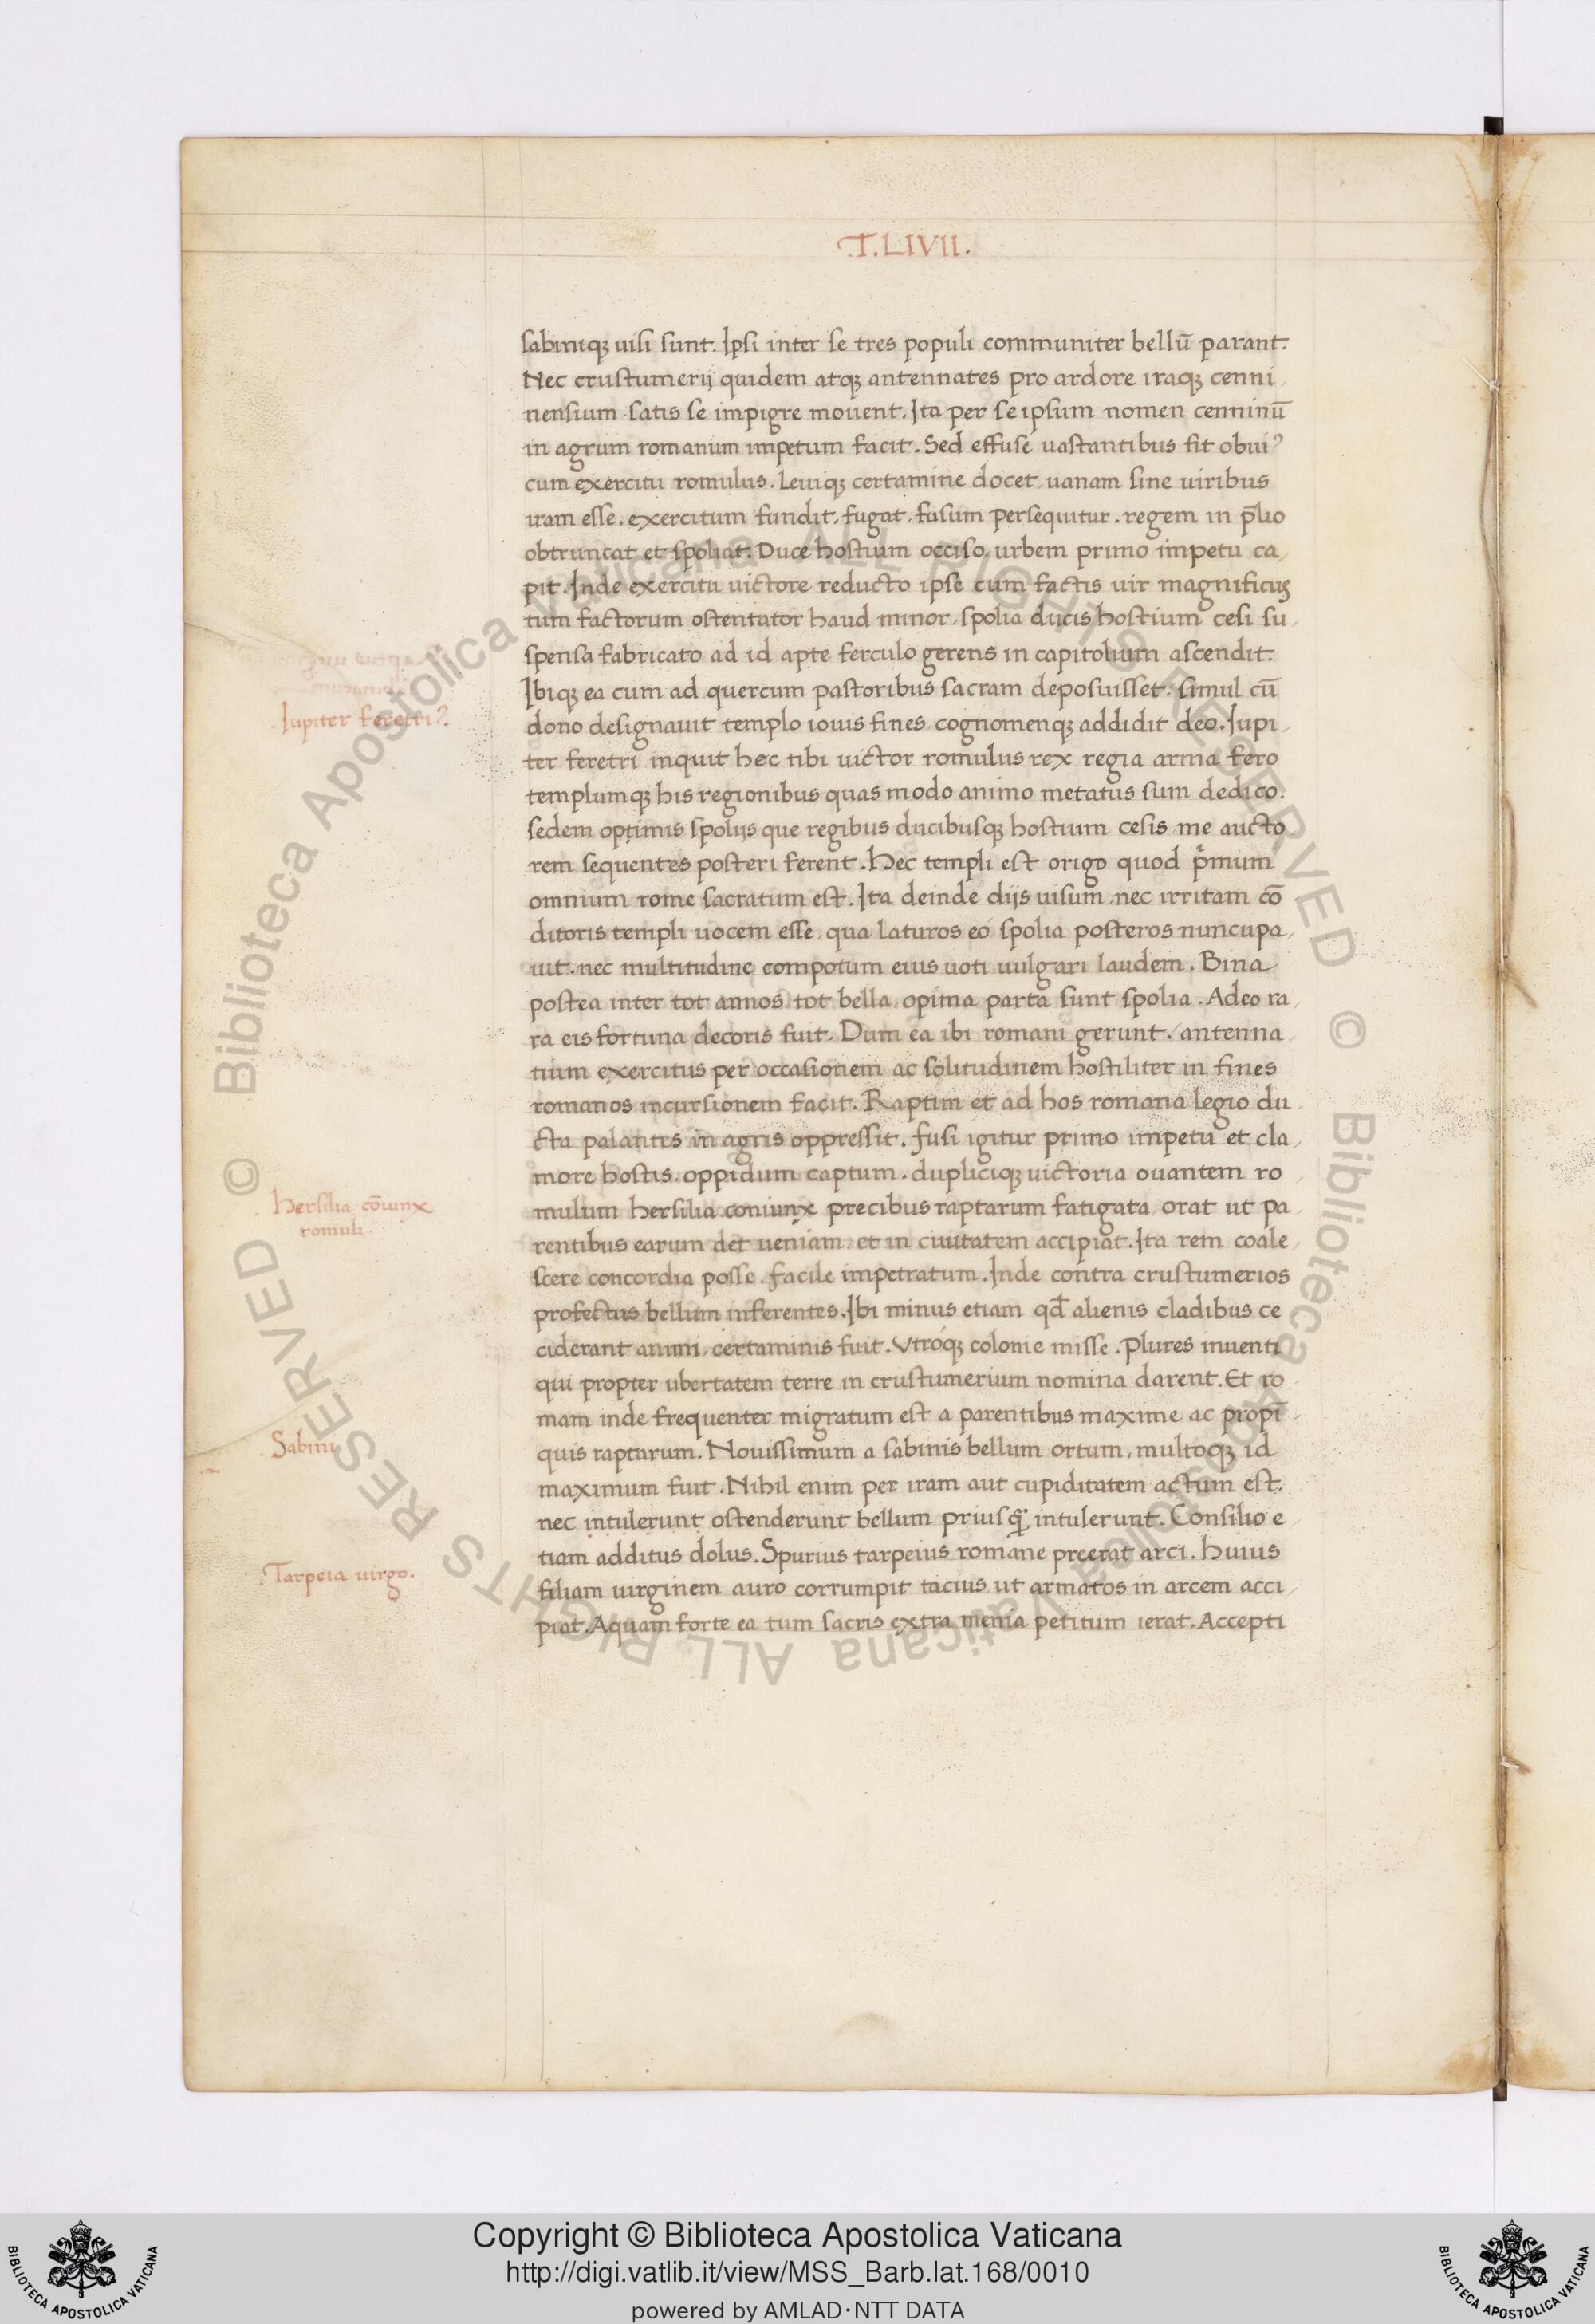 .T.LIVII.
sabiniqꝫ uisi sunt. Ipsi inter se tres populi communiter bellū parant.
Nec crustumerij quidem atqꝫ antennates pro ardore iraqꝫ cenni
nensium satis se impigre mouent. Ita per se ipsum nomen cenninū
in agrum romanum impetum facit. Sed effuse uastantibus fit obuiꝰ
cum exercitu romulus. Leuiqꝫ certamine docet uanam sine uiribus
iram esse. exercitum fundit, fugat, fusum persequitur. regem in p̄lio
obtruncat et spoliat. Duce hostium occiso, urbem primo impetu ca
pit. Inde exercitu uictore reducto ipse cum factis uir magnificus
tum factorum ostentator haud minor, spolia ducis hostium cesi su
spensa fabricato ad id apte ferculo gerens in capitolium ascendit.
Ibiqꝫ ea cum ad quercum pastoribus sacram deposuisset: simul cū
dono designauit templo iouis fines, cognomenqꝫ addidit deo. Iupi
Iupiter feretriꝰ.
ter feretri inquit hec tibi uictor romulus rex regia arma fero
templumqꝫ his regionibus quas modo animo metatus sum dedico.
sedem optimis spolijs que regibus ducibusqꝫ hostium cesis me aucto
rem sequentes posteri ferent. Hec templi est origo quod pͥmum
omnium rome sacratum est. Ita deinde dijs uisum, nec irritam cō
ditoris templi uocem esse, qua laturos eo spolia posteros nuncupa
uit. nec multitudine compotum eius uoti uulgari laudem. Bina
postea inter tot annos, tot bella, opima parta sunt spolia. Adeo ra
ra eis fortuna decoris fuit. Dum ea ibi romani gerunt, antenna
tium exercitus per occasionem ac solitudinem hostiliter in fines
romanos incursionem facit. Raptim et ad hos romana legio du
cta palantes in agris oppressit. fusi igitur primo impetu et cla
more hostis. oppidum captum. dupliciqꝫ uictoria ouantem ro
Hersilia cōiunx
romuli.
mulum hersilia coniunx precibus raptarum fatigata orat ut pa
rentibus earum det ueniam et in ciuitatem accipiat. Ita rem coale
scere concordia posse. facile impetratum. Inde contra crustumerios
profectus bellum inferentes. Ibi minus etiam qđ alienis cladibus ce
ciderant animi, certaminis fuit. Vtroqꝫ colonie misse. Plures inuenti
qui propter ubertatem terre in crustumerium nomina darent. Et ro
mam inde frequenter migratum est a parentibus maxime ac propī
Sabini
quis raptarum. Nouissimum a sabinis bellum ortum, multoqꝫ id
maximum fuit. Nihil enim per iram aut cupiditatem actum est.
nec intulerunt ostenderunt bellum priusq̄ intulerunt. Consilio e
tiam additus dolus. Spurius tarpeius romane preerat arci. huius
Tarpeia uirgo.
filiam uirginem auro corrumpit tacius ut armatos in arcem acci
piat. Aquam forte ea tum sacris extra menia petitum ierat. Accepti
© Biblioteca Apostolica Vaticana ALL RIGHTS RESERVED © Biblioteca Apostolica Vaticana ALL RIGHTS RESERVED
Copyright © Biblioteca Apostolica Vaticana
http://digi.vatlib.it/view/MSS_Barb.lat.168/0010
powered by AMLAD·NTT DATA
BIBLIOTECA APOSTOLICA VATICANA
BIBLIOTECA APOSTOLICA VATICANA